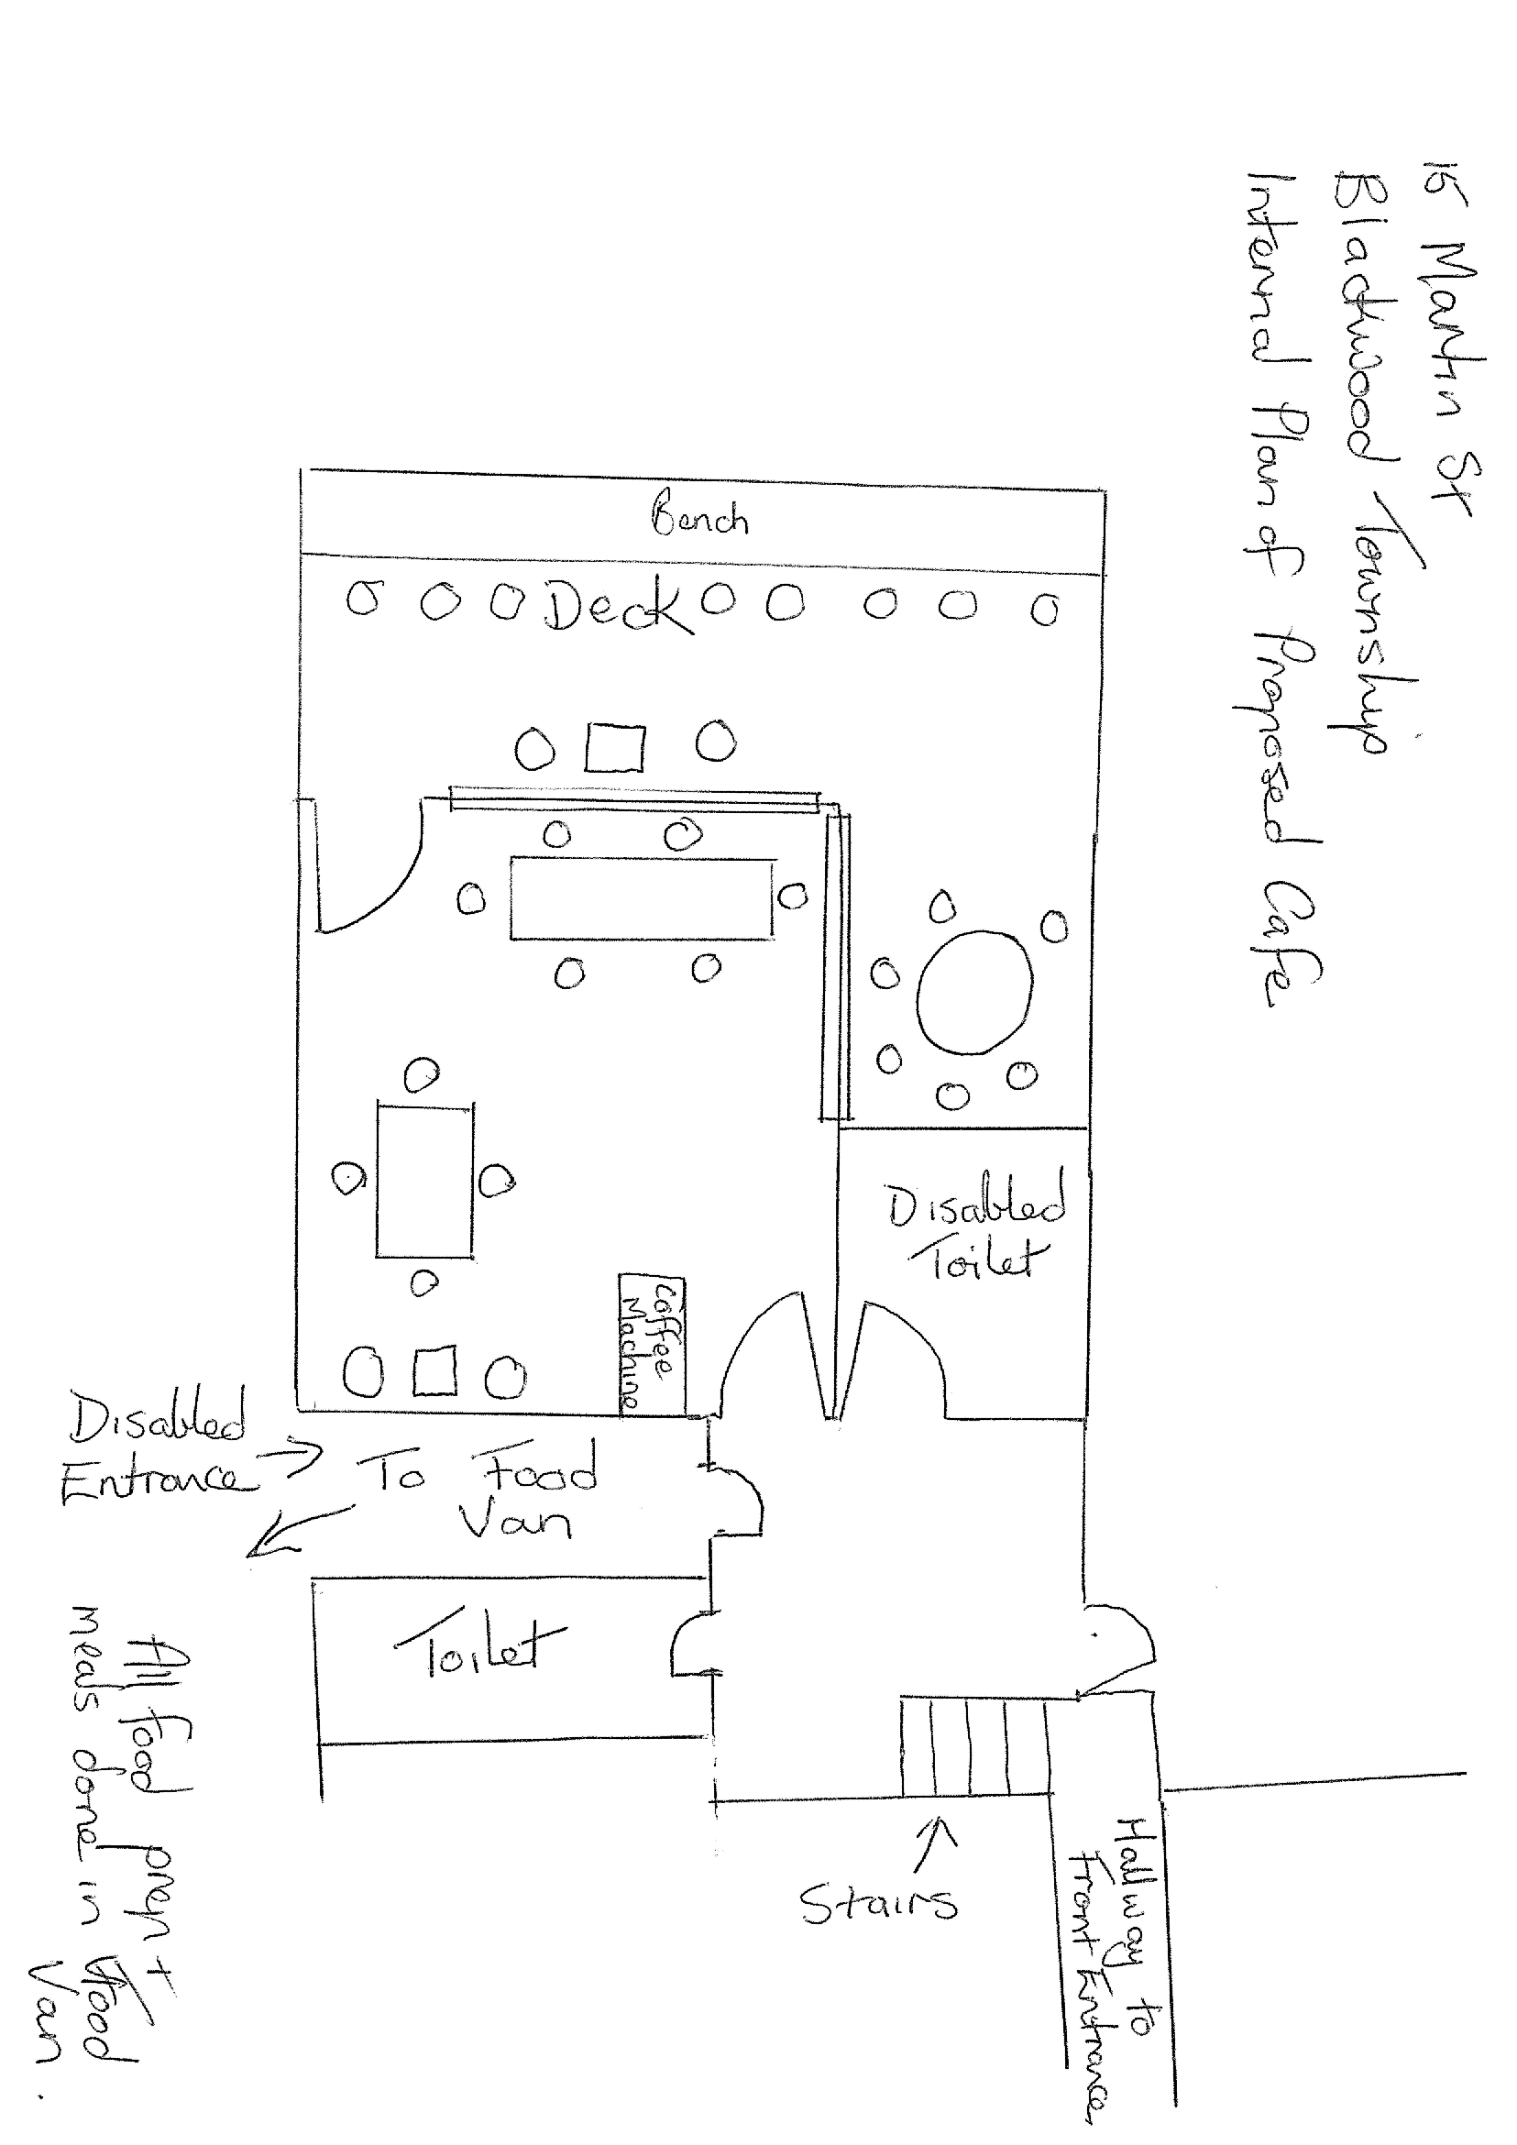 15 Martin St
Blackwood Township
Internal Plan of Proposed Cafe
Bench
Deck
Disabled
Toilet
Coffee
Machine
Disabled
Entrance
To Food
Van
Toilet
Stairs
Hallway to
Front Entrance
All food prep +
meals done in Food
Van.